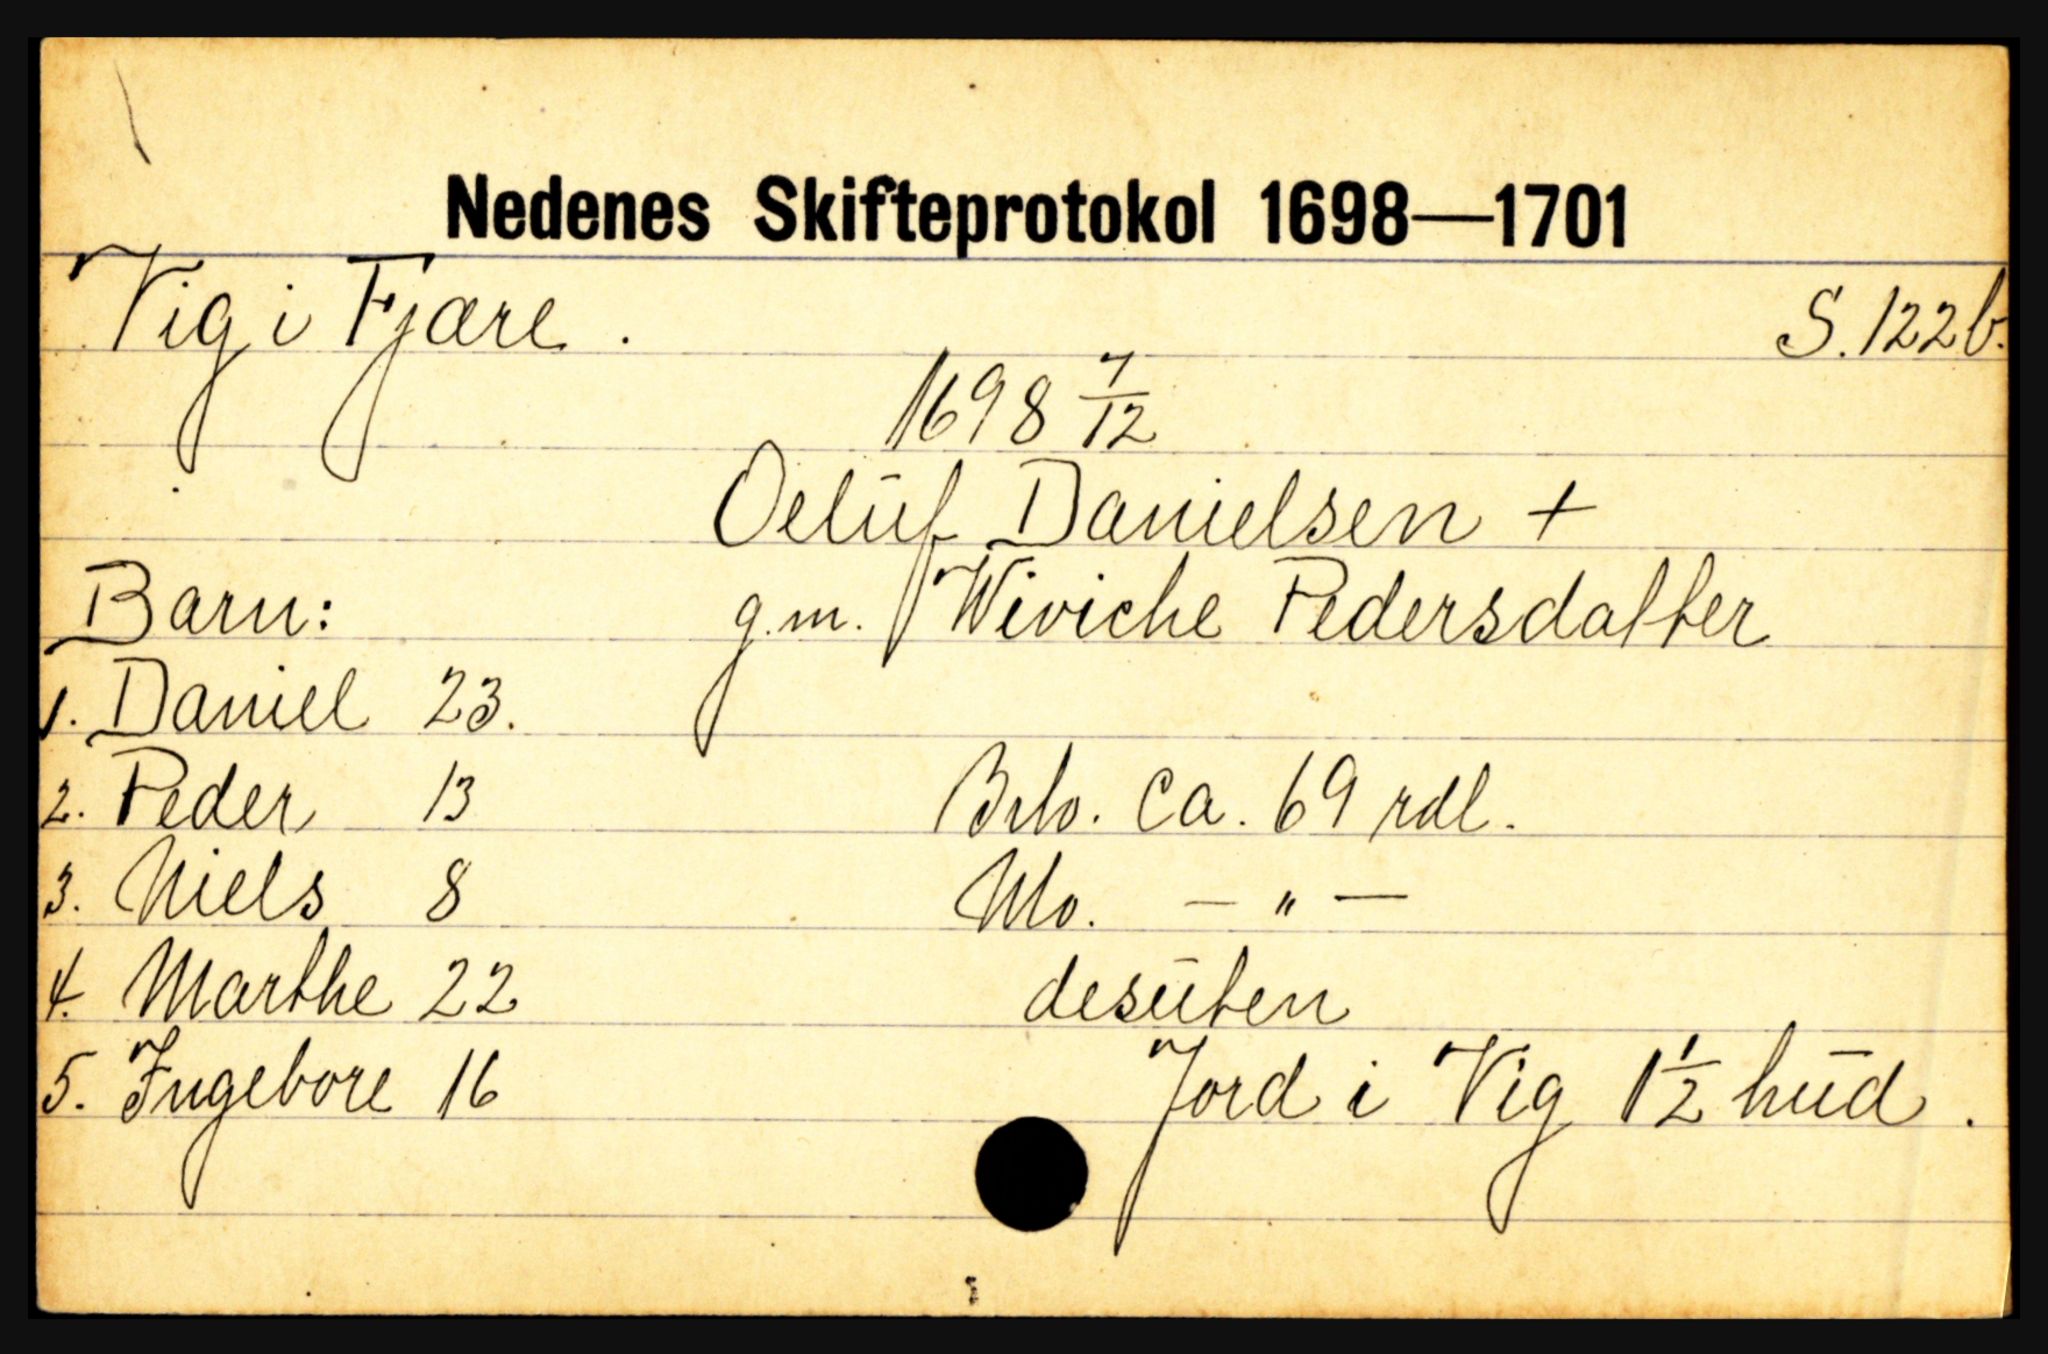 Nedenes Skifteprotokol 1698—1701
Vig i Fjære. S. 122b.
1698 7/12
Oeluf Danielsen +
g.m. Wiviche Pedersdatter
Barn:
1. Daniel 23.
2. Peder 13 Brb. ca. 69 rdl.
3. Niels 8 No. — " —
4. Marthe 22 desuten
5. Ingebore 16 Jord i Vig 1 1/2 hud.